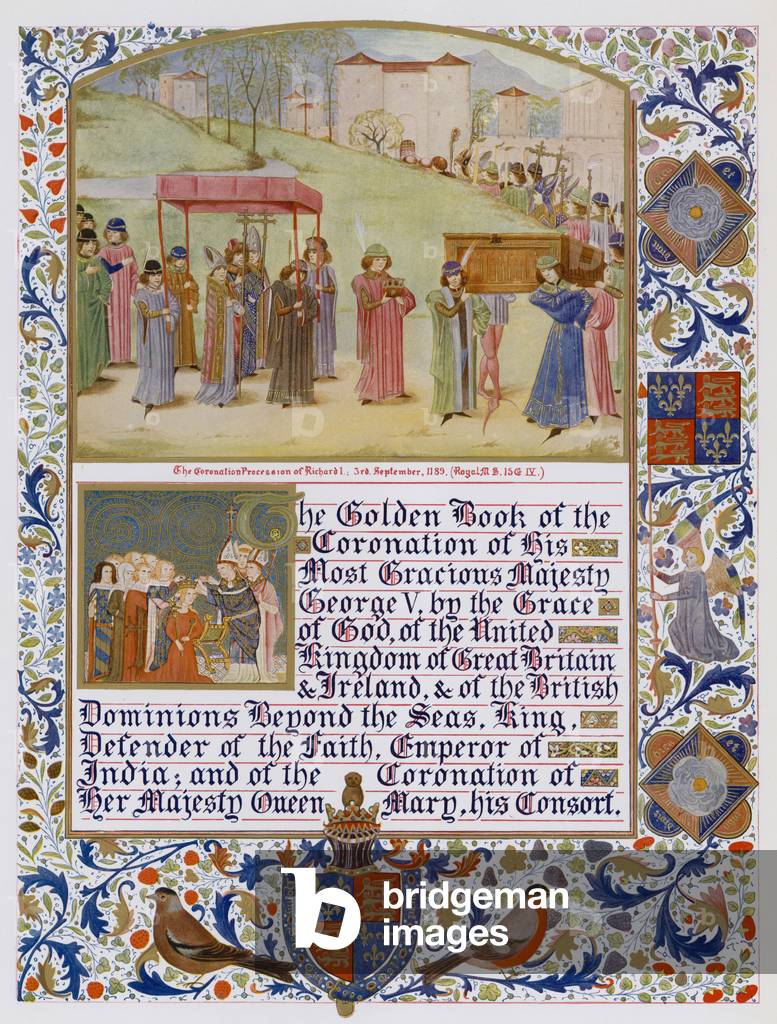 The Coronation Procession of Richard I.; 3rd. September, 1189. (Royal M S. 15 G IV.)
The Golden Book of the
Coronation of His
Most Gracious Majesty
George V, by the Grace
of God, of the United
Kingdom of Great Britain
& Ireland, & of the British
Dominions Beyond the Seas, King,
Defender of the Faith, Emperor of
India; and of the Coronation of
Her Majesty Queen Mary, his Consort.
b bridgeman
images